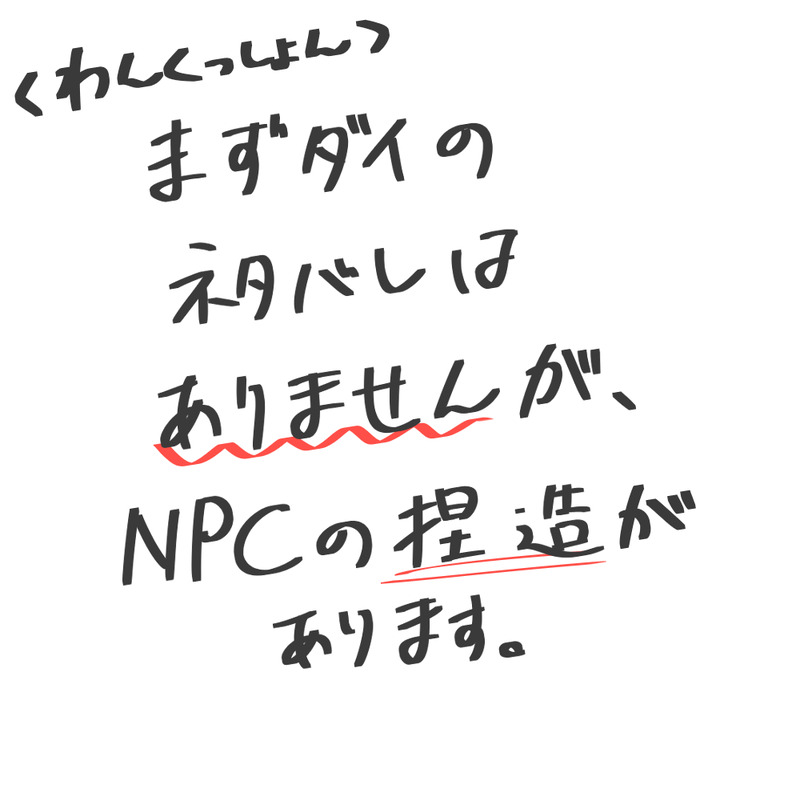 くわんくっしょん>
まずダイの
ネタバレは
ありませんが、
NPCの捏造が
あります。